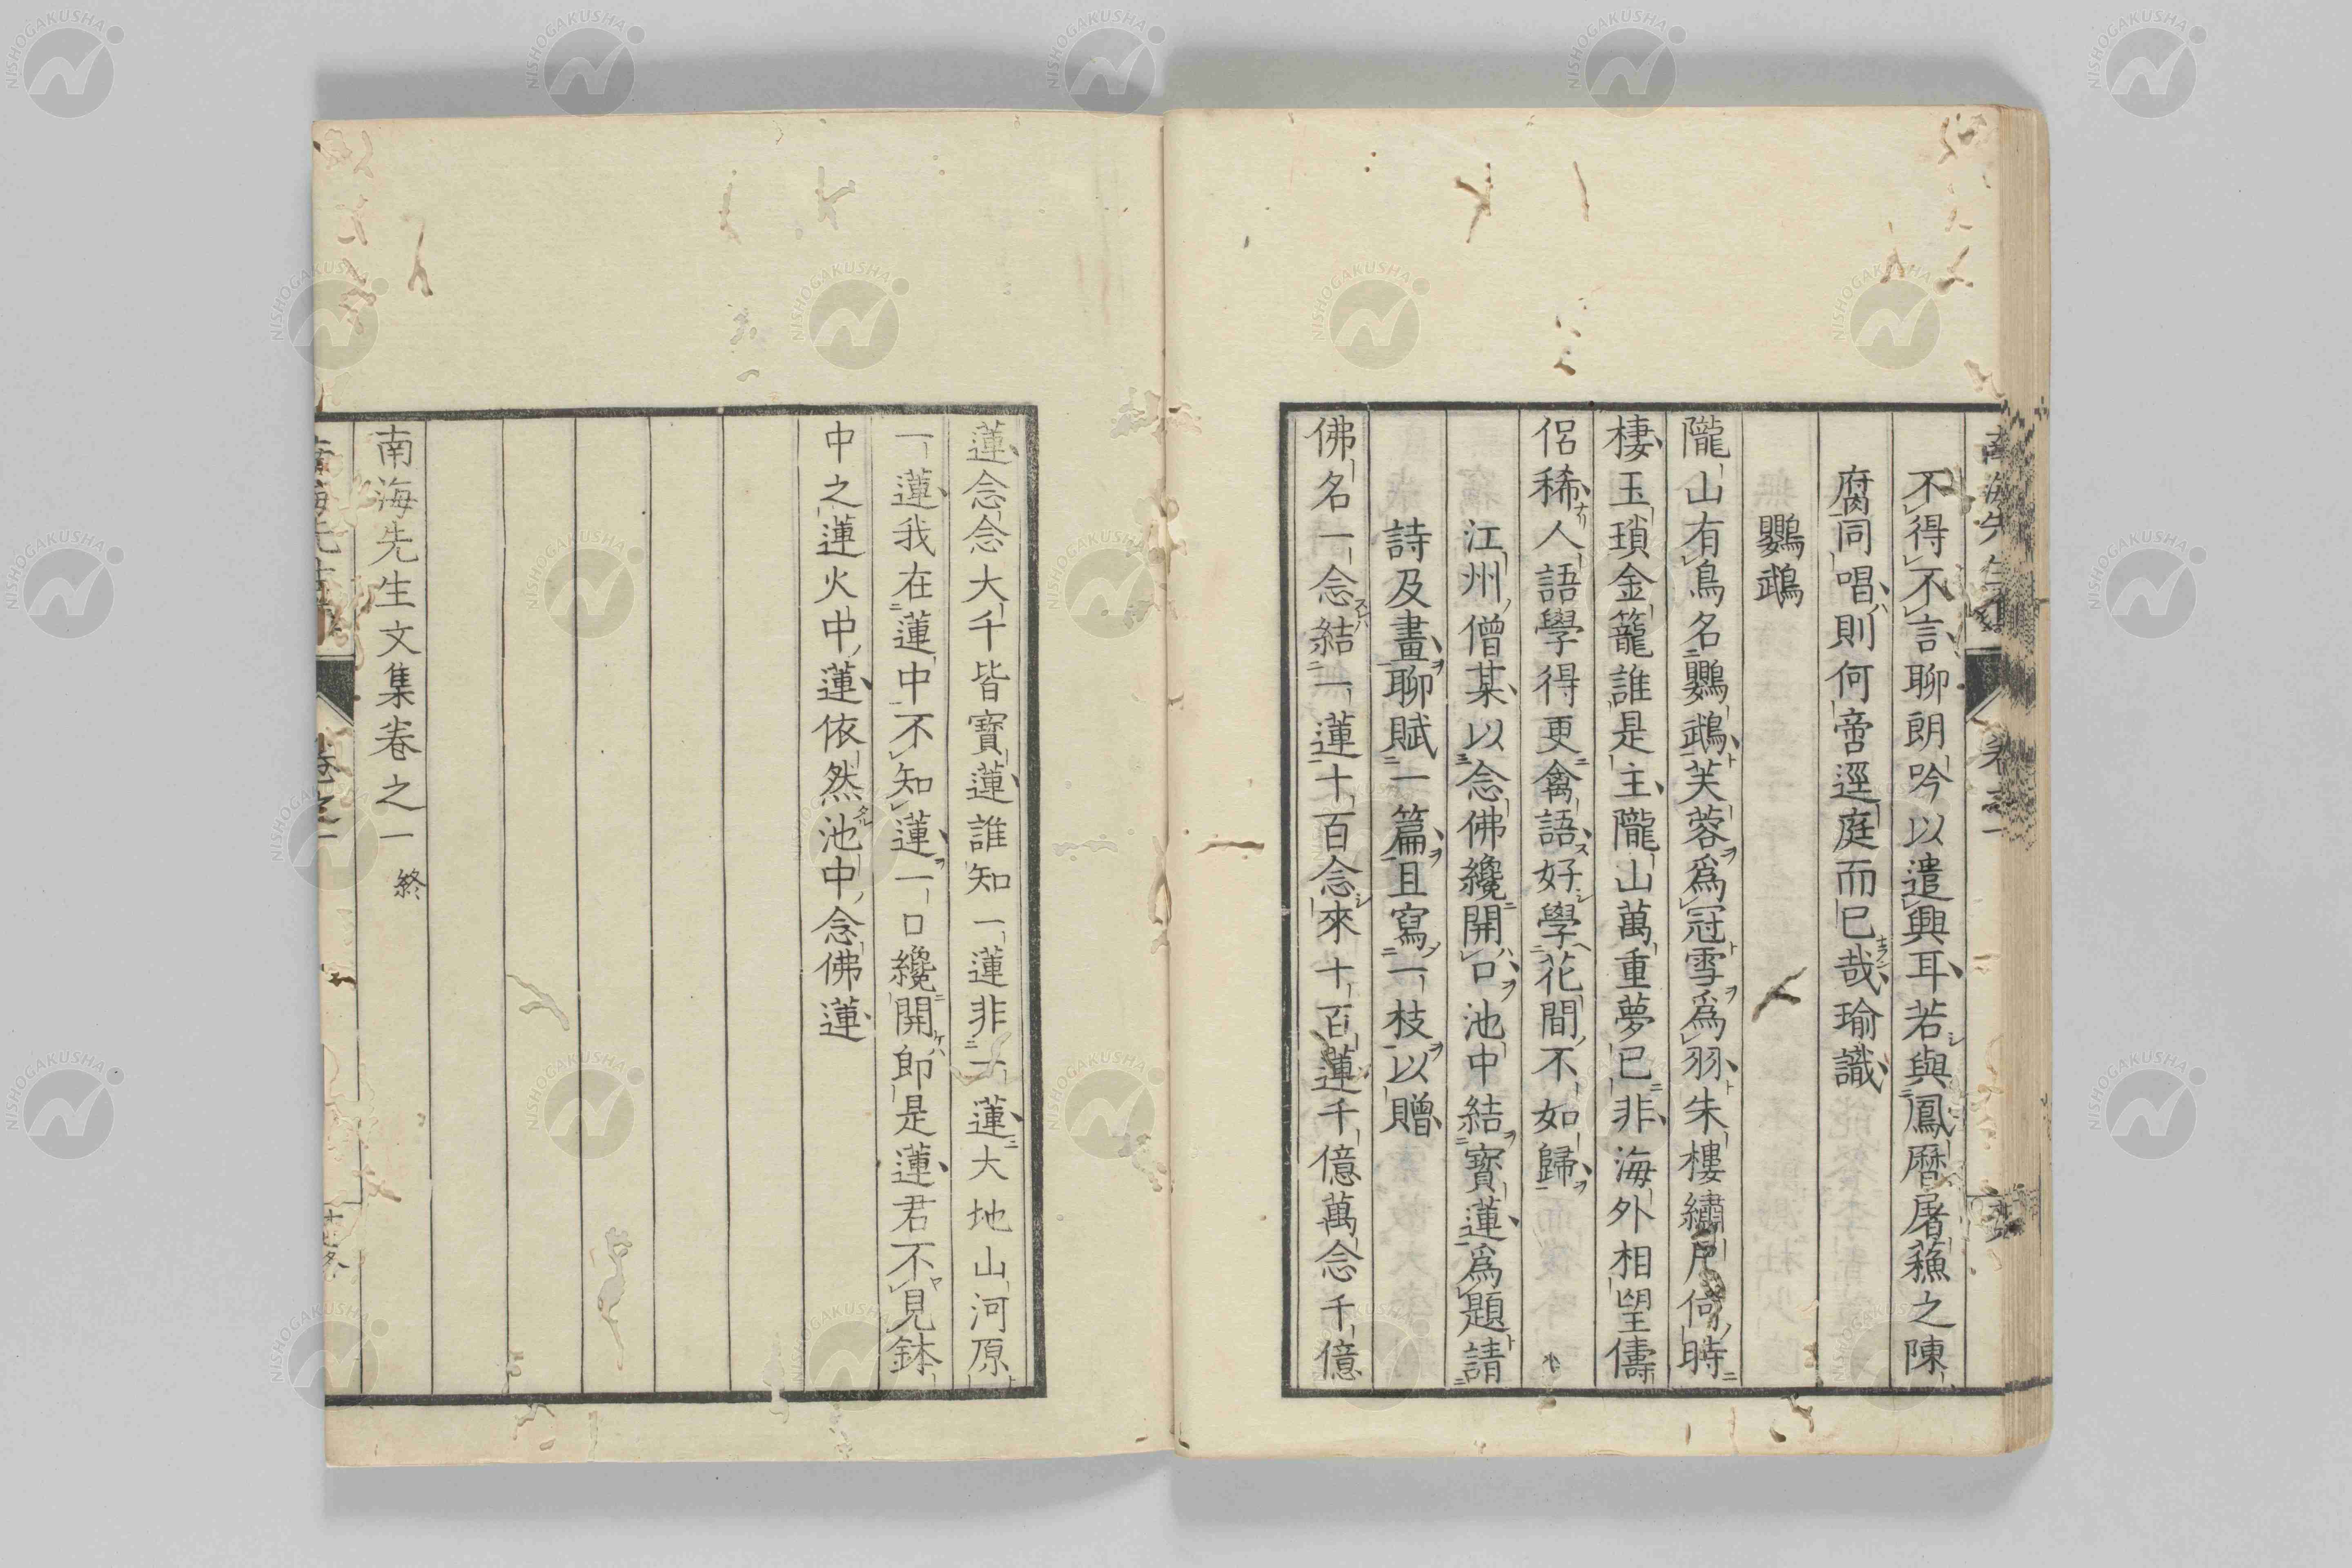 不得不言聊朗吟以遣興耳若與鳳曆屠蘓之陳
腐同唱則何啻逕庭而已哉瑜識
鸚鵡
隴山有鳥名鸚鵡芙蓉爲冠雪爲羽朱樓繡戶何時
棲玉瑣金籠誰是主隴山萬重夢已非海外相望儔
侶稀人語學得更禽語好學花間不如歸
江州僧某以念佛纔開口池中結寶蓮爲題請
詩及畫聊賦一篇且寫一枝以贈
佛名一念結一蓮十百念來十百蓮千億萬念千億
蓮念念大千皆寶蓮誰知一蓮非一蓮大地山河原
一蓮我在蓮中不知蓮一口纔開即是蓮君不見鉢
中之蓮火中蓮依然池中念佛蓮
南海先生文集卷之一 終
NISHOGAKUSHA